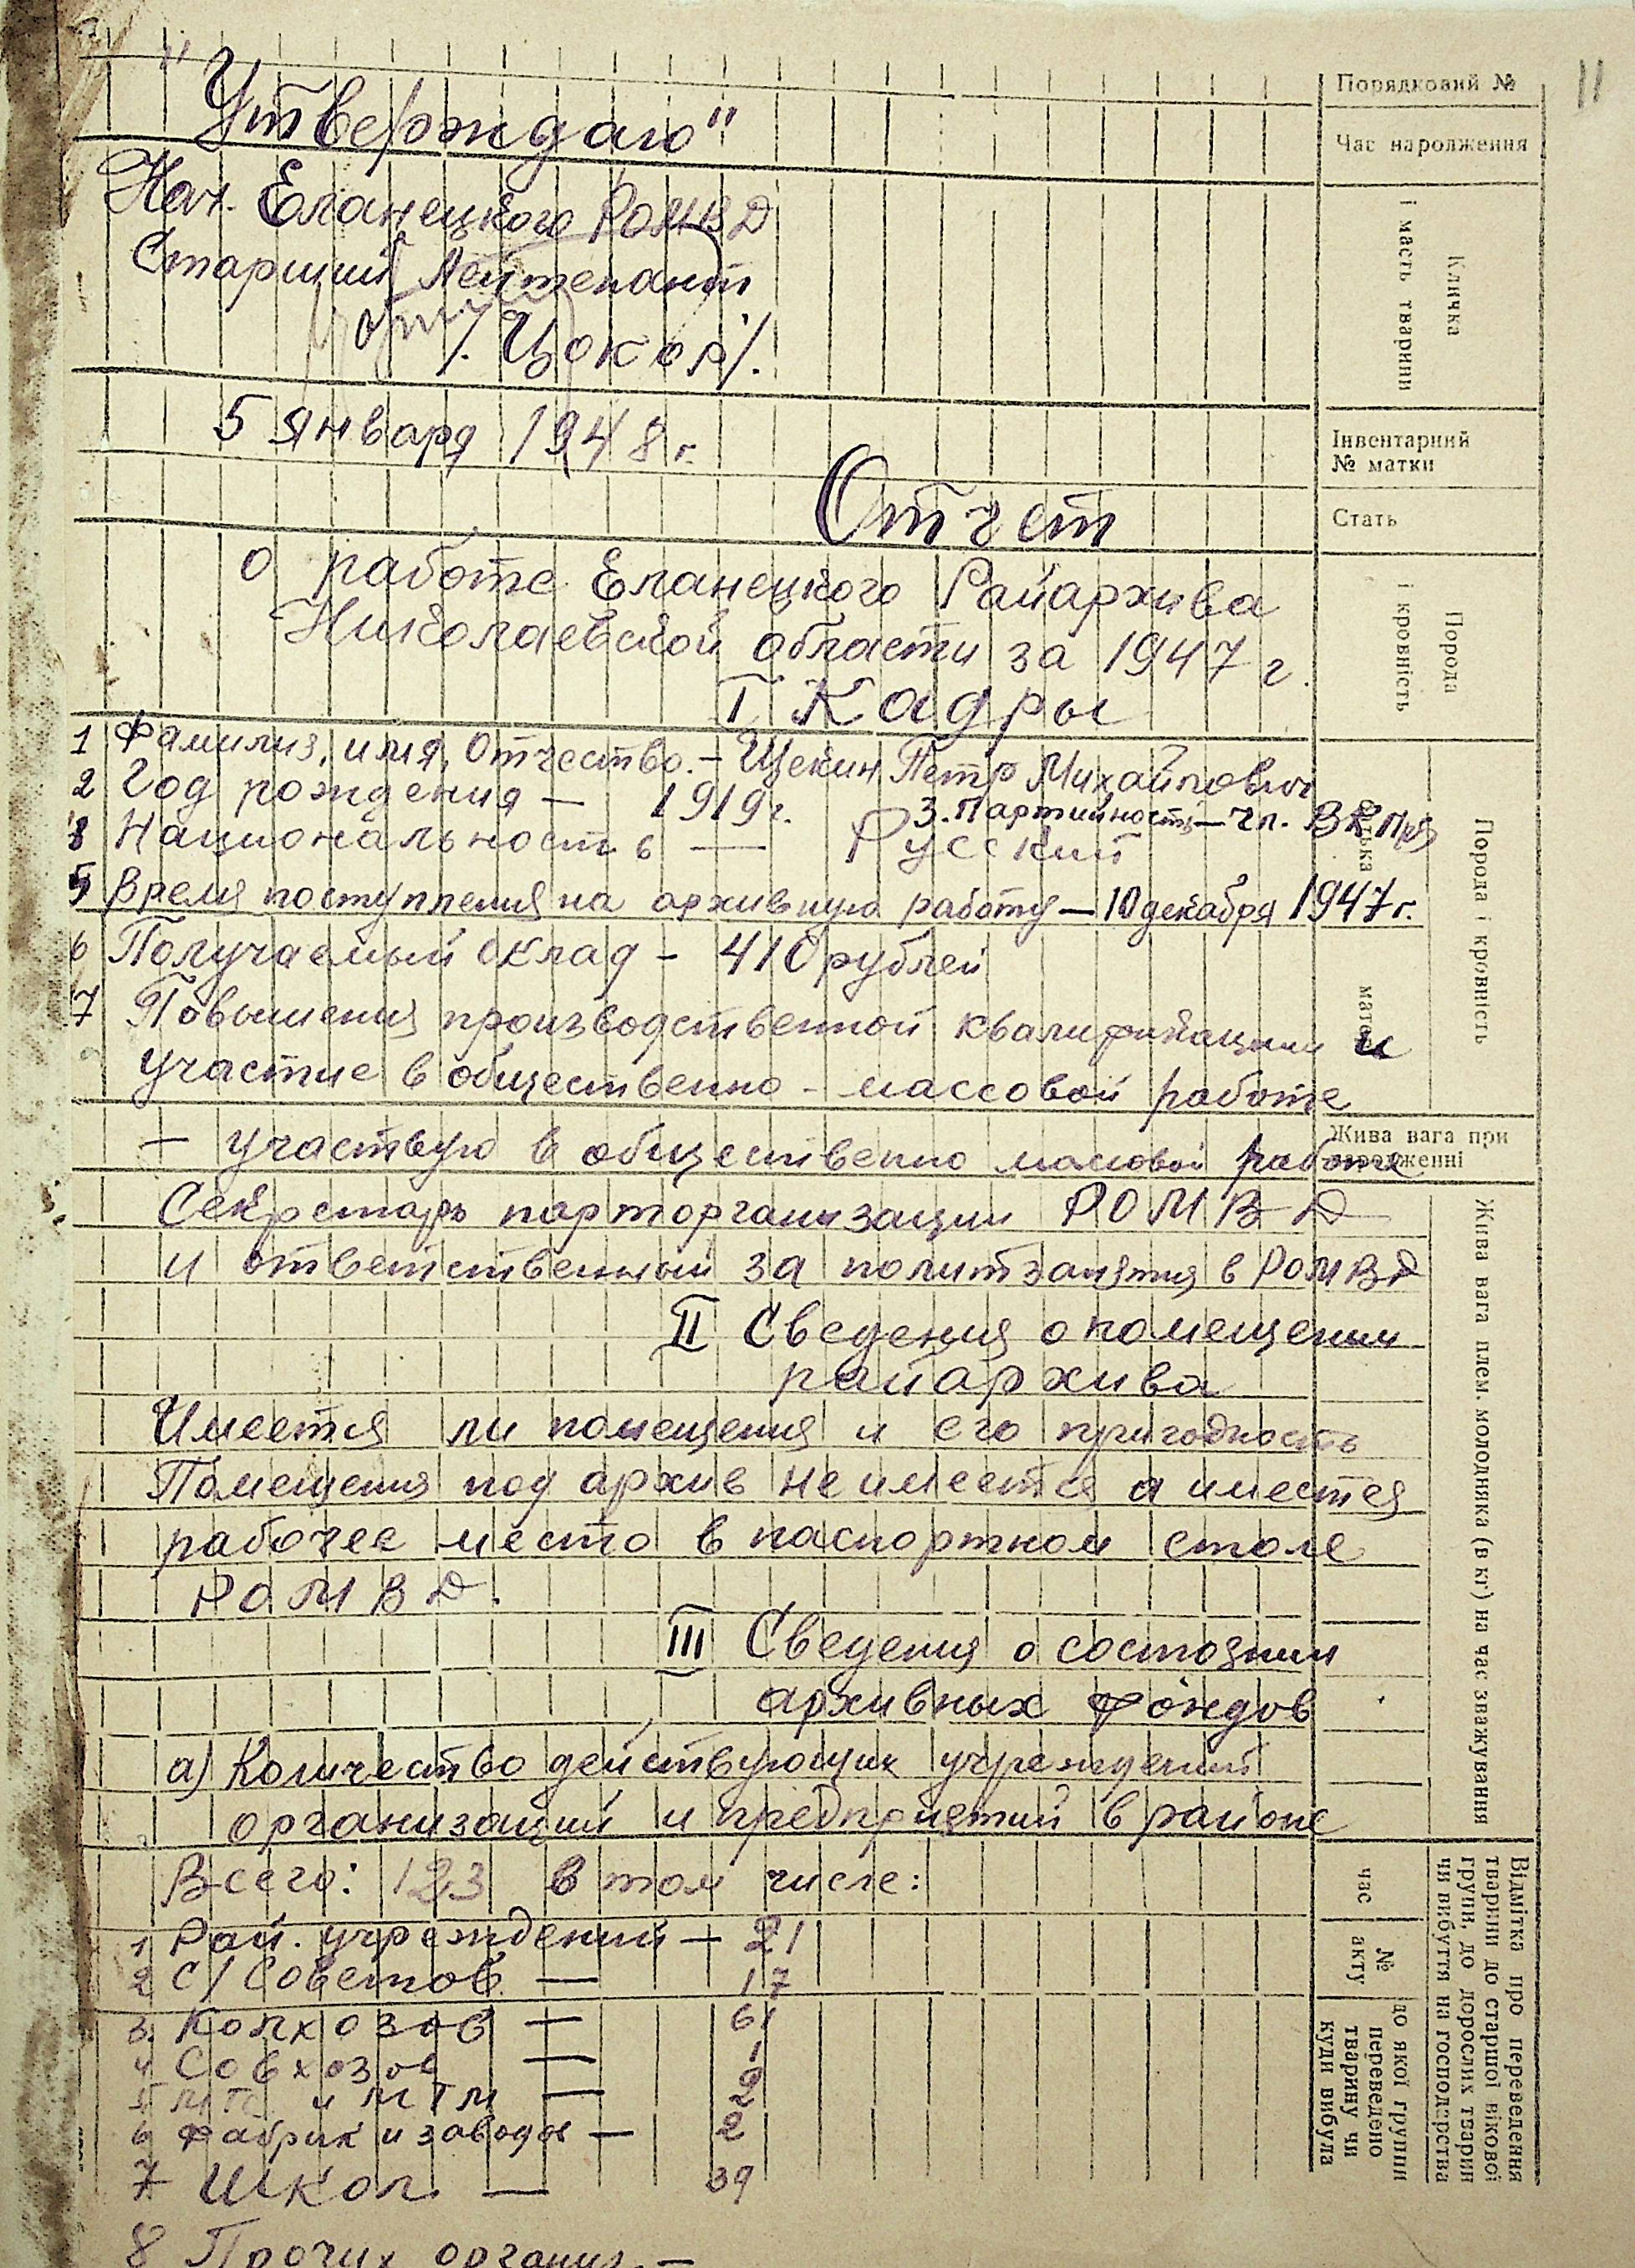 11
"Утверждаю"
Нач. Еланецкого РОМВД
Старший Лейтенант
/. Цокор/.
5 января 1948 г.
Отчет
о работе Еланецкого Райархива
Николаевской области за 1947 г.
I Кадры
1 Фамилия, имя, Отчество. – Щекин Петр Михайлович
2 Год рождения – 1919 г. 3. Партийность – чл. ВКП(б)
Национальность — Русский
5 Время поступления на архивную работу – 10 декабря 1947 г.
6 Получаемый оклад – 410 рублей
7 Повышения производственной квалификации и
участие в общественно – массовой работе
– участвую в общественно массовой работе
Секретарь парторганизации РОМВД
и ответственный за политзанятия в РОМВД
II Сведения о помещении
райархива
Имеется ли помещения и его пригодность
Помещения под архив не имеется а имеется
рабочее место в паспортном столе
РОМВД.
III Сведения о состоянии
архивных фондов
а) Количество действующих учреждений
организаций и предприятий в районе
Всего: 123 в том числе:
1 Рай. учреждений – 21
2 С/Советов — 17
3. Колхозов — 61
4 Совхозов — 1
5 МТС и МТМ — 2
6 Фабрик и заводов — 2
7 Школ. — 39
8 Прочих организ. –
Порядковий №
Час народження
Кличка
і масть тварини
Інвентарний
№ матки
Стать
Порода
і кровність
Порода і кровність
Жива вага при
народженні
Жива вага плем. молодняка (в кг) на час зважування
Відмітка про переведення
тварини до старшої вікової
групи, до дорослих тварин
чи вибуття на господарства
час
№
акту
до якої групи
переведено
тварину чи
куди вибула